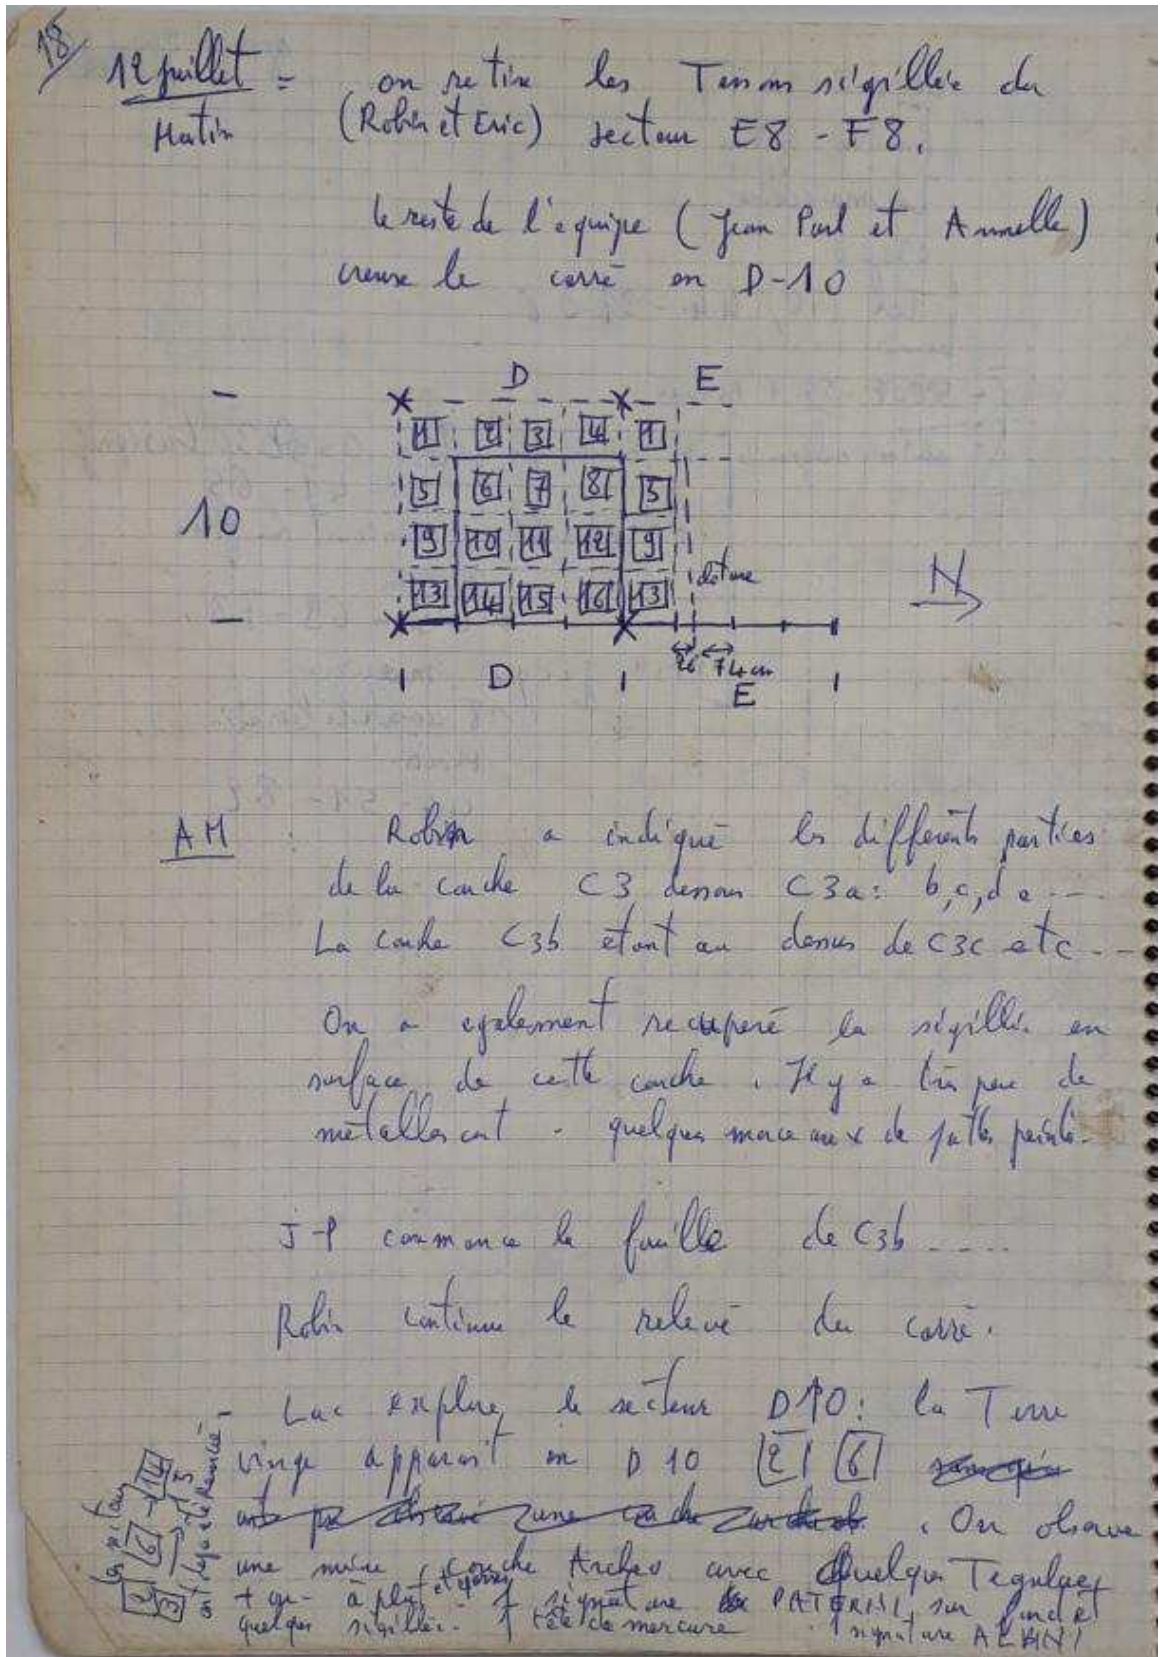 18/
12 juillet = on retire les Tessons sigillée du
Matin (Robin et Eric) secteur E8 - F8.
le reste de l'equipe (Jean Paul et Annelle)
creuse le carré en D-10
D E
1 2 3 4 1
5 6 7 8 5
10
9 10 11 12 9
13 14 15 16 13
cloture
N
26 74 cm
D E
AM : Robin a indiqué les différents parties
de la couche C3 dessous C3a : b, c, d e ---
La couche C3b etant au dessus de C3c etc --
On a egalement recuperé la sigillée en
surface de cette couche. Il y a très peu de
metallescent - quelques morceaux de pattes peints.
J-P commence la fouille de C3b -----
Robin continue le relevé du carré.
- Luc explore le secteur D10 : la Terre
vierge apparait en D 10 2 6
. On observe
une mince couche Archeo avec Quelques Tegulaes
+ ou - à plat et
quelques sigillée. 1 signature PATERNI sur
1 tête de mercure 1 signature
les
2 6 → 14
3 → 15
ont